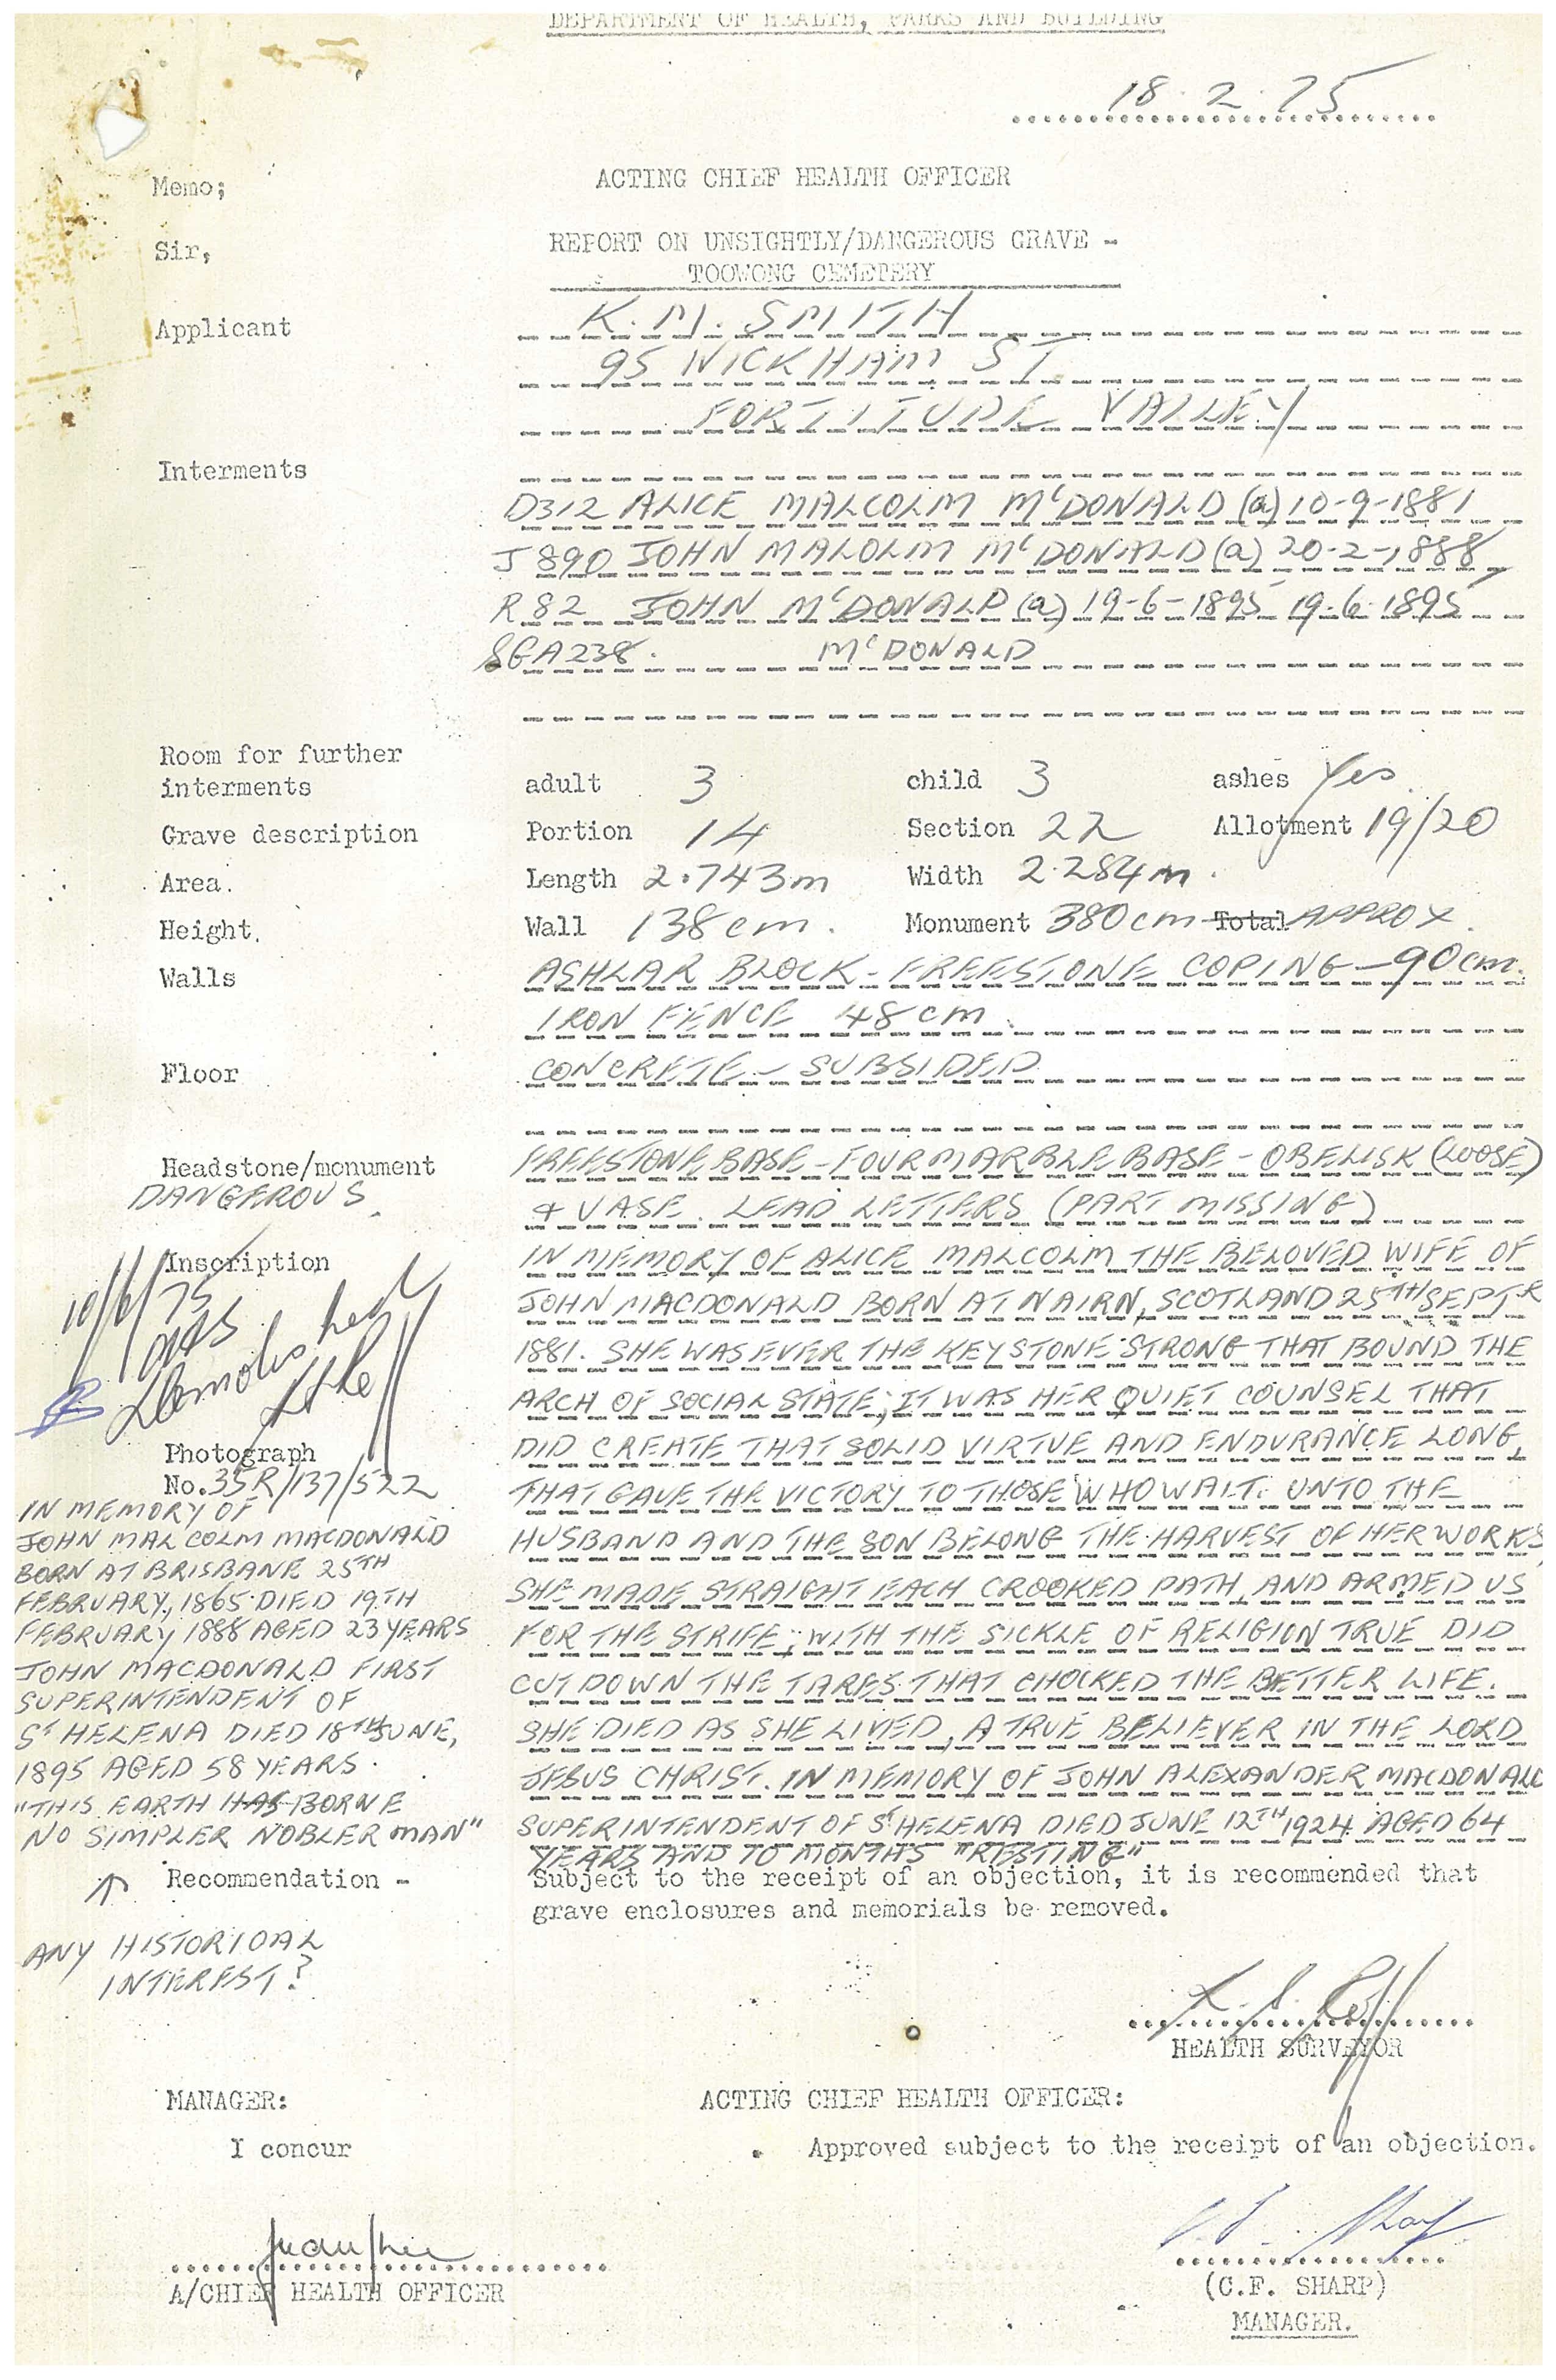 DEPARTMENT OF HEALTH, PARKS AND BUILDING
18.2.75
Memo; ACTING CHIEF HEALTH OFFICER
Sir, REPORT ON UNSIGHTLY/DANGEROUS GRAVE -
TOOWONG CEMETERY
Applicant K. M. SMITH
95 WICKHAM ST
FORTITUDE VALLEY
Interments
D312 ALICE MALCOLM McDONALD (a) 10-9-1881
J890 JOHN MALOLM McDONALD (a) 20-2-1888
R82 JOHN McDONALD (a) 19-6-1895 19.6.1895
SGA238. McDONALD
Room for further
interments adult 3 child 3 ashes Yes
Grave description Portion 14 Section 22 Allotment 19/20
Area. Length 2.743m Width 2.284m.
Height. Wall 138cm. Monument 380cm Total APPROX.
Walls ASHLAR BLOCK - FREESTONE COPING - 90cm.
IRON FENCE 48cm.
Floor CONCRETE - SUBSIDED
Headstone/monument FREESTONE BASE - FOUR MARBLE BASE - OBELISK (LOOSE)
DANGEROUS. & VASE. LEAD LETTERS (PART MISSING)
Inscription IN MEMORY OF ALICE MALCOLM THE BELOVED WIFE OF
JOHN MACDONALD BORN AT NAIRN, SCOTLAND 25TH SEPTR
1881. SHE WAS EVER THE KEYSTONE STRONG THAT BOUND THE
ARCH OF SOCIAL STATE; IT WAS HER QUIET COUNSEL THAT
DID CREATE THAT SOLID VIRTUE AND ENDURANCE LONG,
THAT GAVE THE VICTORY TO THOSE WHO WAIT. UNTO THE
HUSBAND AND THE SON BELONG THE HARVEST OF HER WORKS,
SHE MADE STRAIGHT EACH CROOKED PATH, AND ARMED US
FOR THE STRIFE; WITH THE SICKLE OF RELIGION TRUE DID
CUT DOWN THE TARES THAT CHOCKED THE BETTER LIFE.
SHE DIED AS SHE LIVED, A TRUE BELIEVER IN THE LORD
JESUS CHRIST. IN MEMORY OF JOHN ALEXANDER MACDONALD
SUPERINTENDENT OF ST HELENA DIED JUNE 12TH 1924 AGED 64
YEARS AND 10 MONTHS "RESTING"
10/6/75
Photograph
No. 35R/137/522
IN MEMORY OF
JOHN MALCOLM MACDONALD
BORN AT BRISBANE 25TH
FEBRUARY, 1865 DIED 19TH
FEBRUARY 1888 AGED 23 YEARS
JOHN MACDONALD FIRST
SUPERINTENDENT OF
ST HELENA DIED 18TH JUNE,
1895 AGED 58 YEARS.
"THIS EARTH HAS BORNE
NO SIMPLER NOBLER MAN"
Recommendation - Subject to the receipt of an objection, it is recommended that
grave enclosures and memorials be removed.
↑
ANY HISTORICAL
INTEREST?
HEALTH SURVEYOR
MANAGER: ACTING CHIEF HEALTH OFFICER:
I concur Approved subject to the receipt of an objection.
A/CHIEF HEALTH OFFICER (C.F. SHARP)
MANAGER.